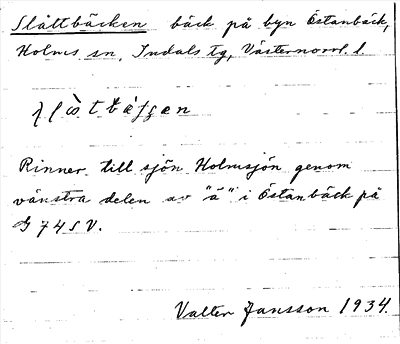 Slåttbäcken bäck på byn Östanbäck,
Holms sn, Indals tg, Västernorrl. l.
Rinner till sjön Holmsjön genom
vänstra delen av "ä" i Östanbäck på
G 74 S V.
Valter Jansson 1934.